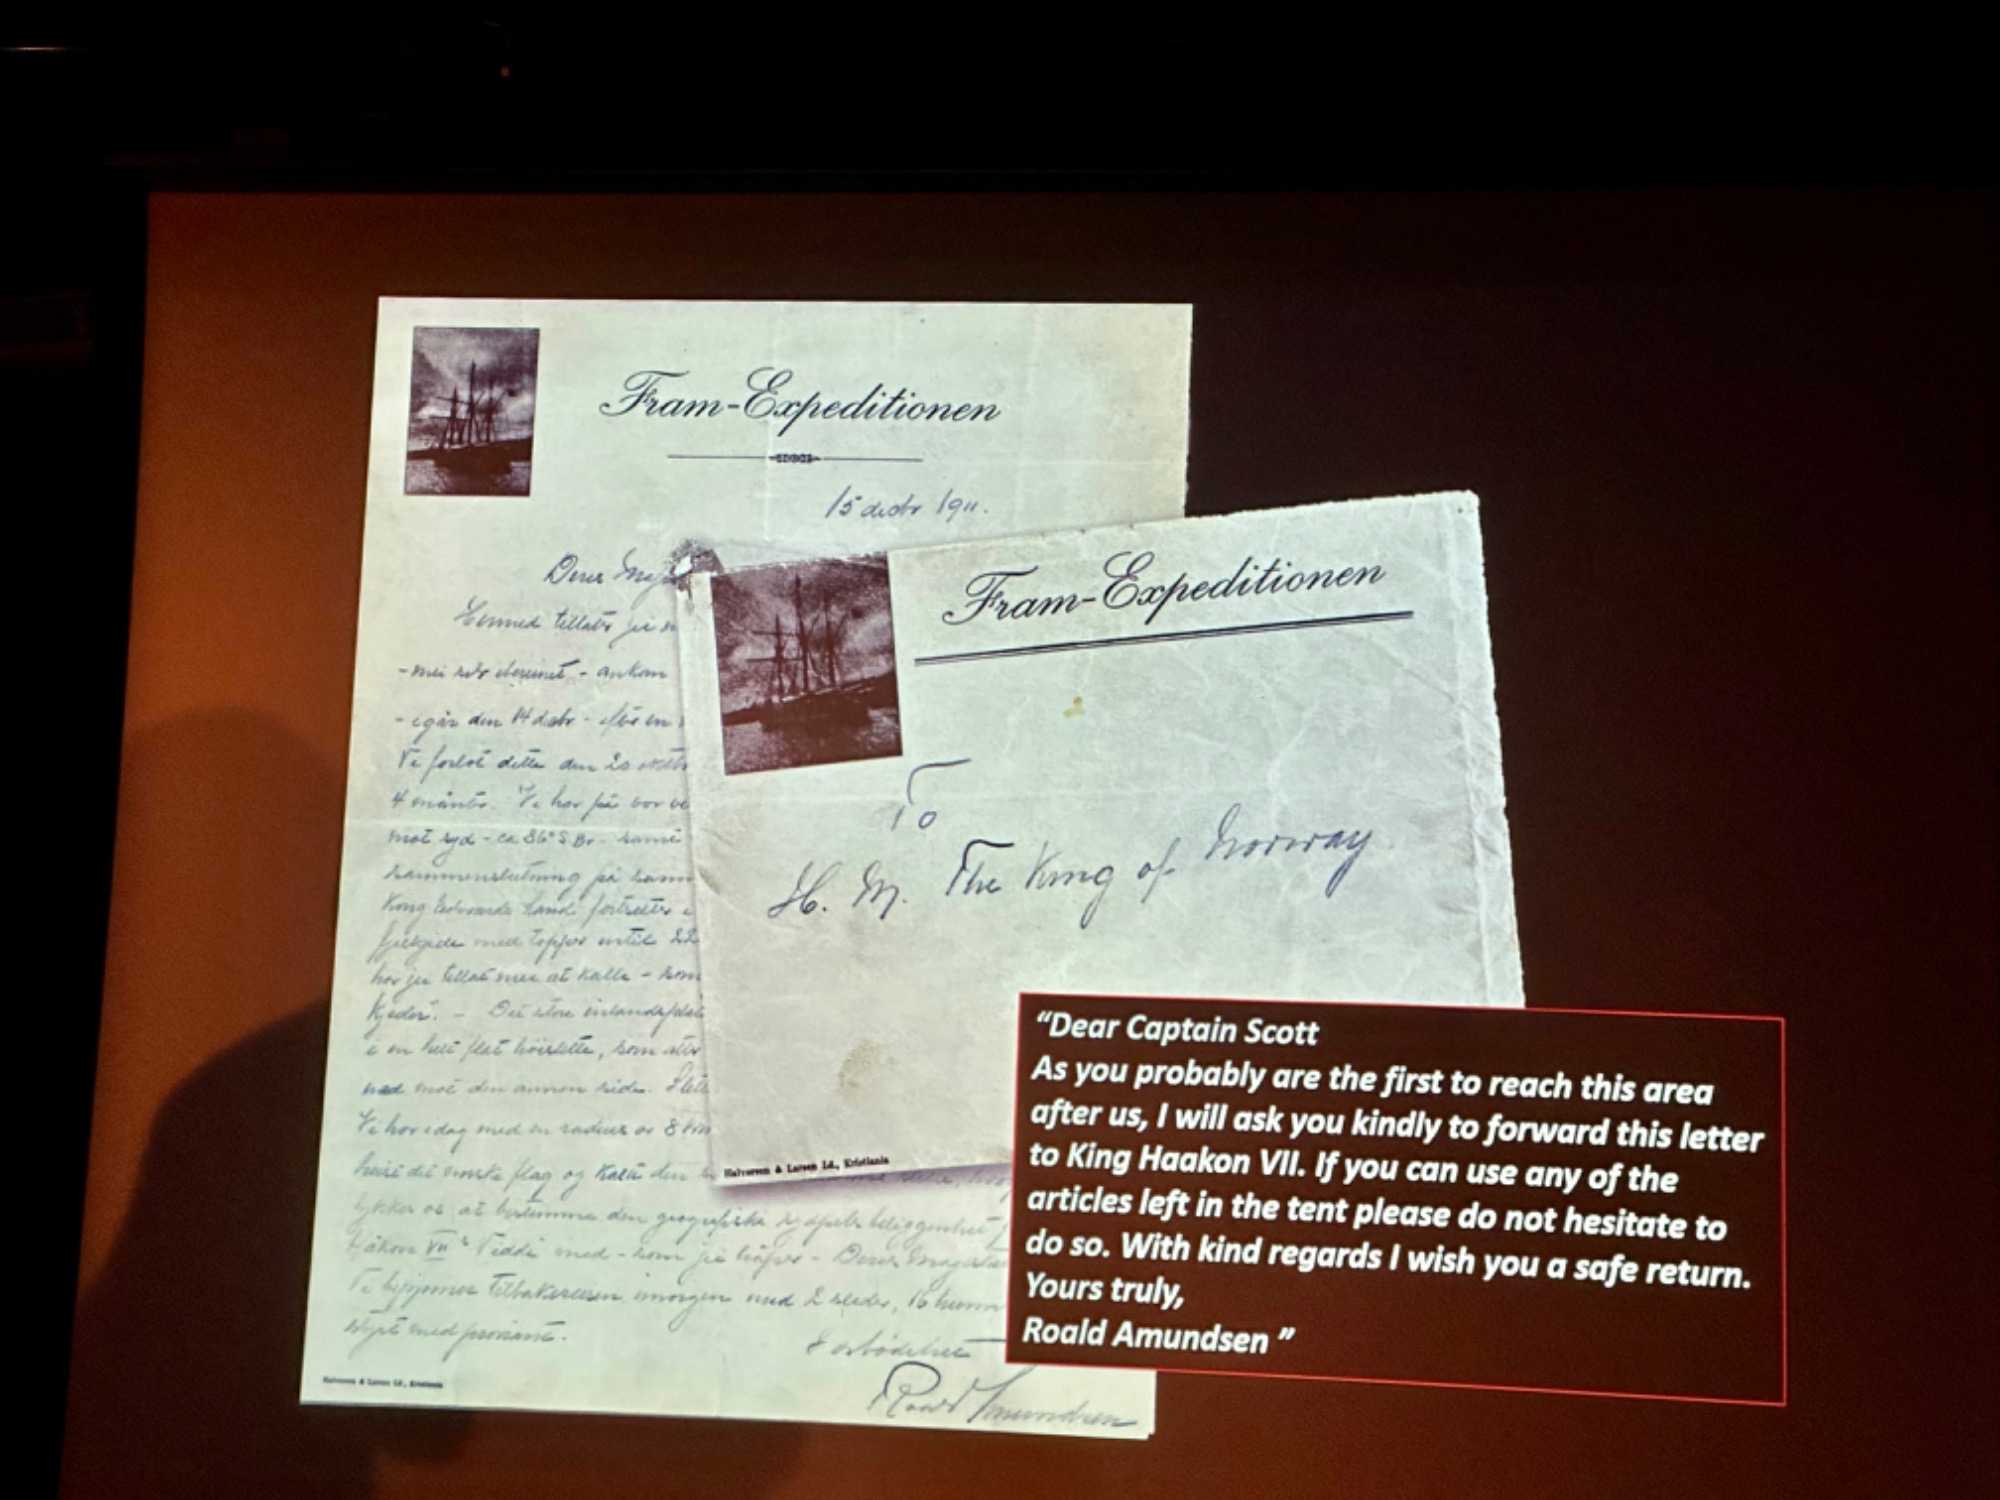 Fram-Expeditionen
15 decbr 1911.
Deres
Hermed tillater jeg
- mei selv iberegnet - ankom
- igår den 14 decbr - efter en
Vi forlot dette den 20 oktbr
4 månter. Vi har på vor
mot syd - ca 86° S.Br.
sammenslutning på samme
Kong Edwards Land fortsætter
med topper indtil 22
har jeg tillat mei at kalle - som
Kjeder. - Det store
i en helt flat høislette, som
ned mot den annen side.
Vi har idag med en radius av 8
heist det norske flag og kalt den
os at bestemme den geografiske sydpols beliggenhet
Håkon VII's Vidde med - som jei håper - Deres
Vi begynner tilbakereisen imorgen med 2 sleder, 16
med proviant.
Roald Amundsen
Halvorsen & Larsen Ld., Kristiania
Fram-Expeditionen
To
H. M. The King of Norway
Halvorsen & Larsen Ld., Kristiania
“Dear Captain Scott
As you probably are the first to reach this area
after us, I will ask you kindly to forward this letter
to King Haakon VII. If you can use any of the
articles left in the tent please do not hesitate to
do so. With kind regards I wish you a safe return.
Yours truly,
Roald Amundsen ”